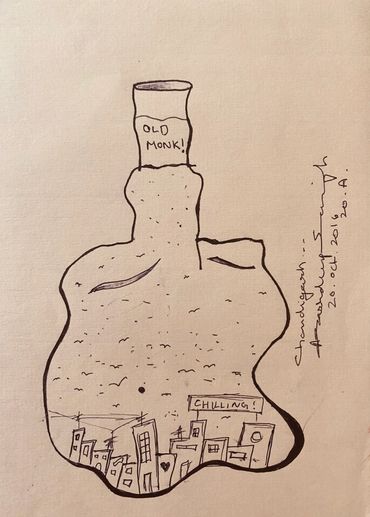 OLD
MONK!
CHILLING!
Chandigarh...
20. Oct. 2016
20. A.